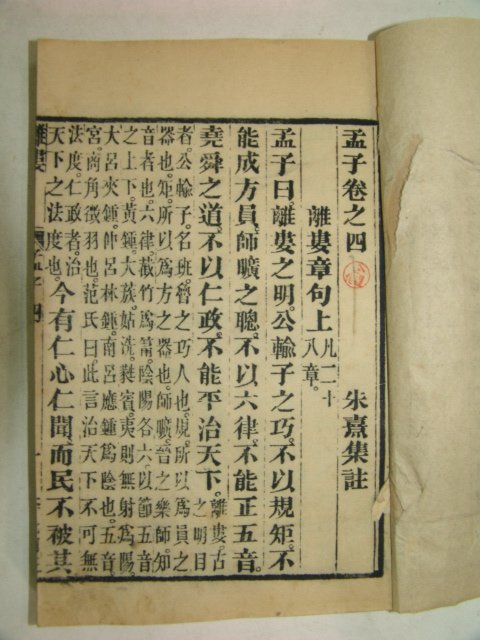 孟子卷之四　朱熹集註
離婁章句上 凡二十
八章。
孟子曰。離婁之明。公輸子之巧。不以規矩。不
能成方員。師曠之聰。不以六律。不能正五音。
堯舜之道。不以仁政。不能平治天下。離婁古
之明目
者。公輸子。名班。魯之巧人也。規。所以爲員之
器也。矩。所以爲方之器也。師曠。晉之樂師。知
音者也。六律。截竹爲筩。陰陽各六。以節五音
之上下。黃鍾大蔟。姑洗。蕤賓。夷則無射。爲陽。
大呂夾鍾。仲呂林鍾。南呂應鍾。爲陰也。五音。
宮商角徵羽也。范氏曰。此言治天下不可無
法度。仁政者。治
天下之法度也。今有仁心仁聞而民不被其
離婁